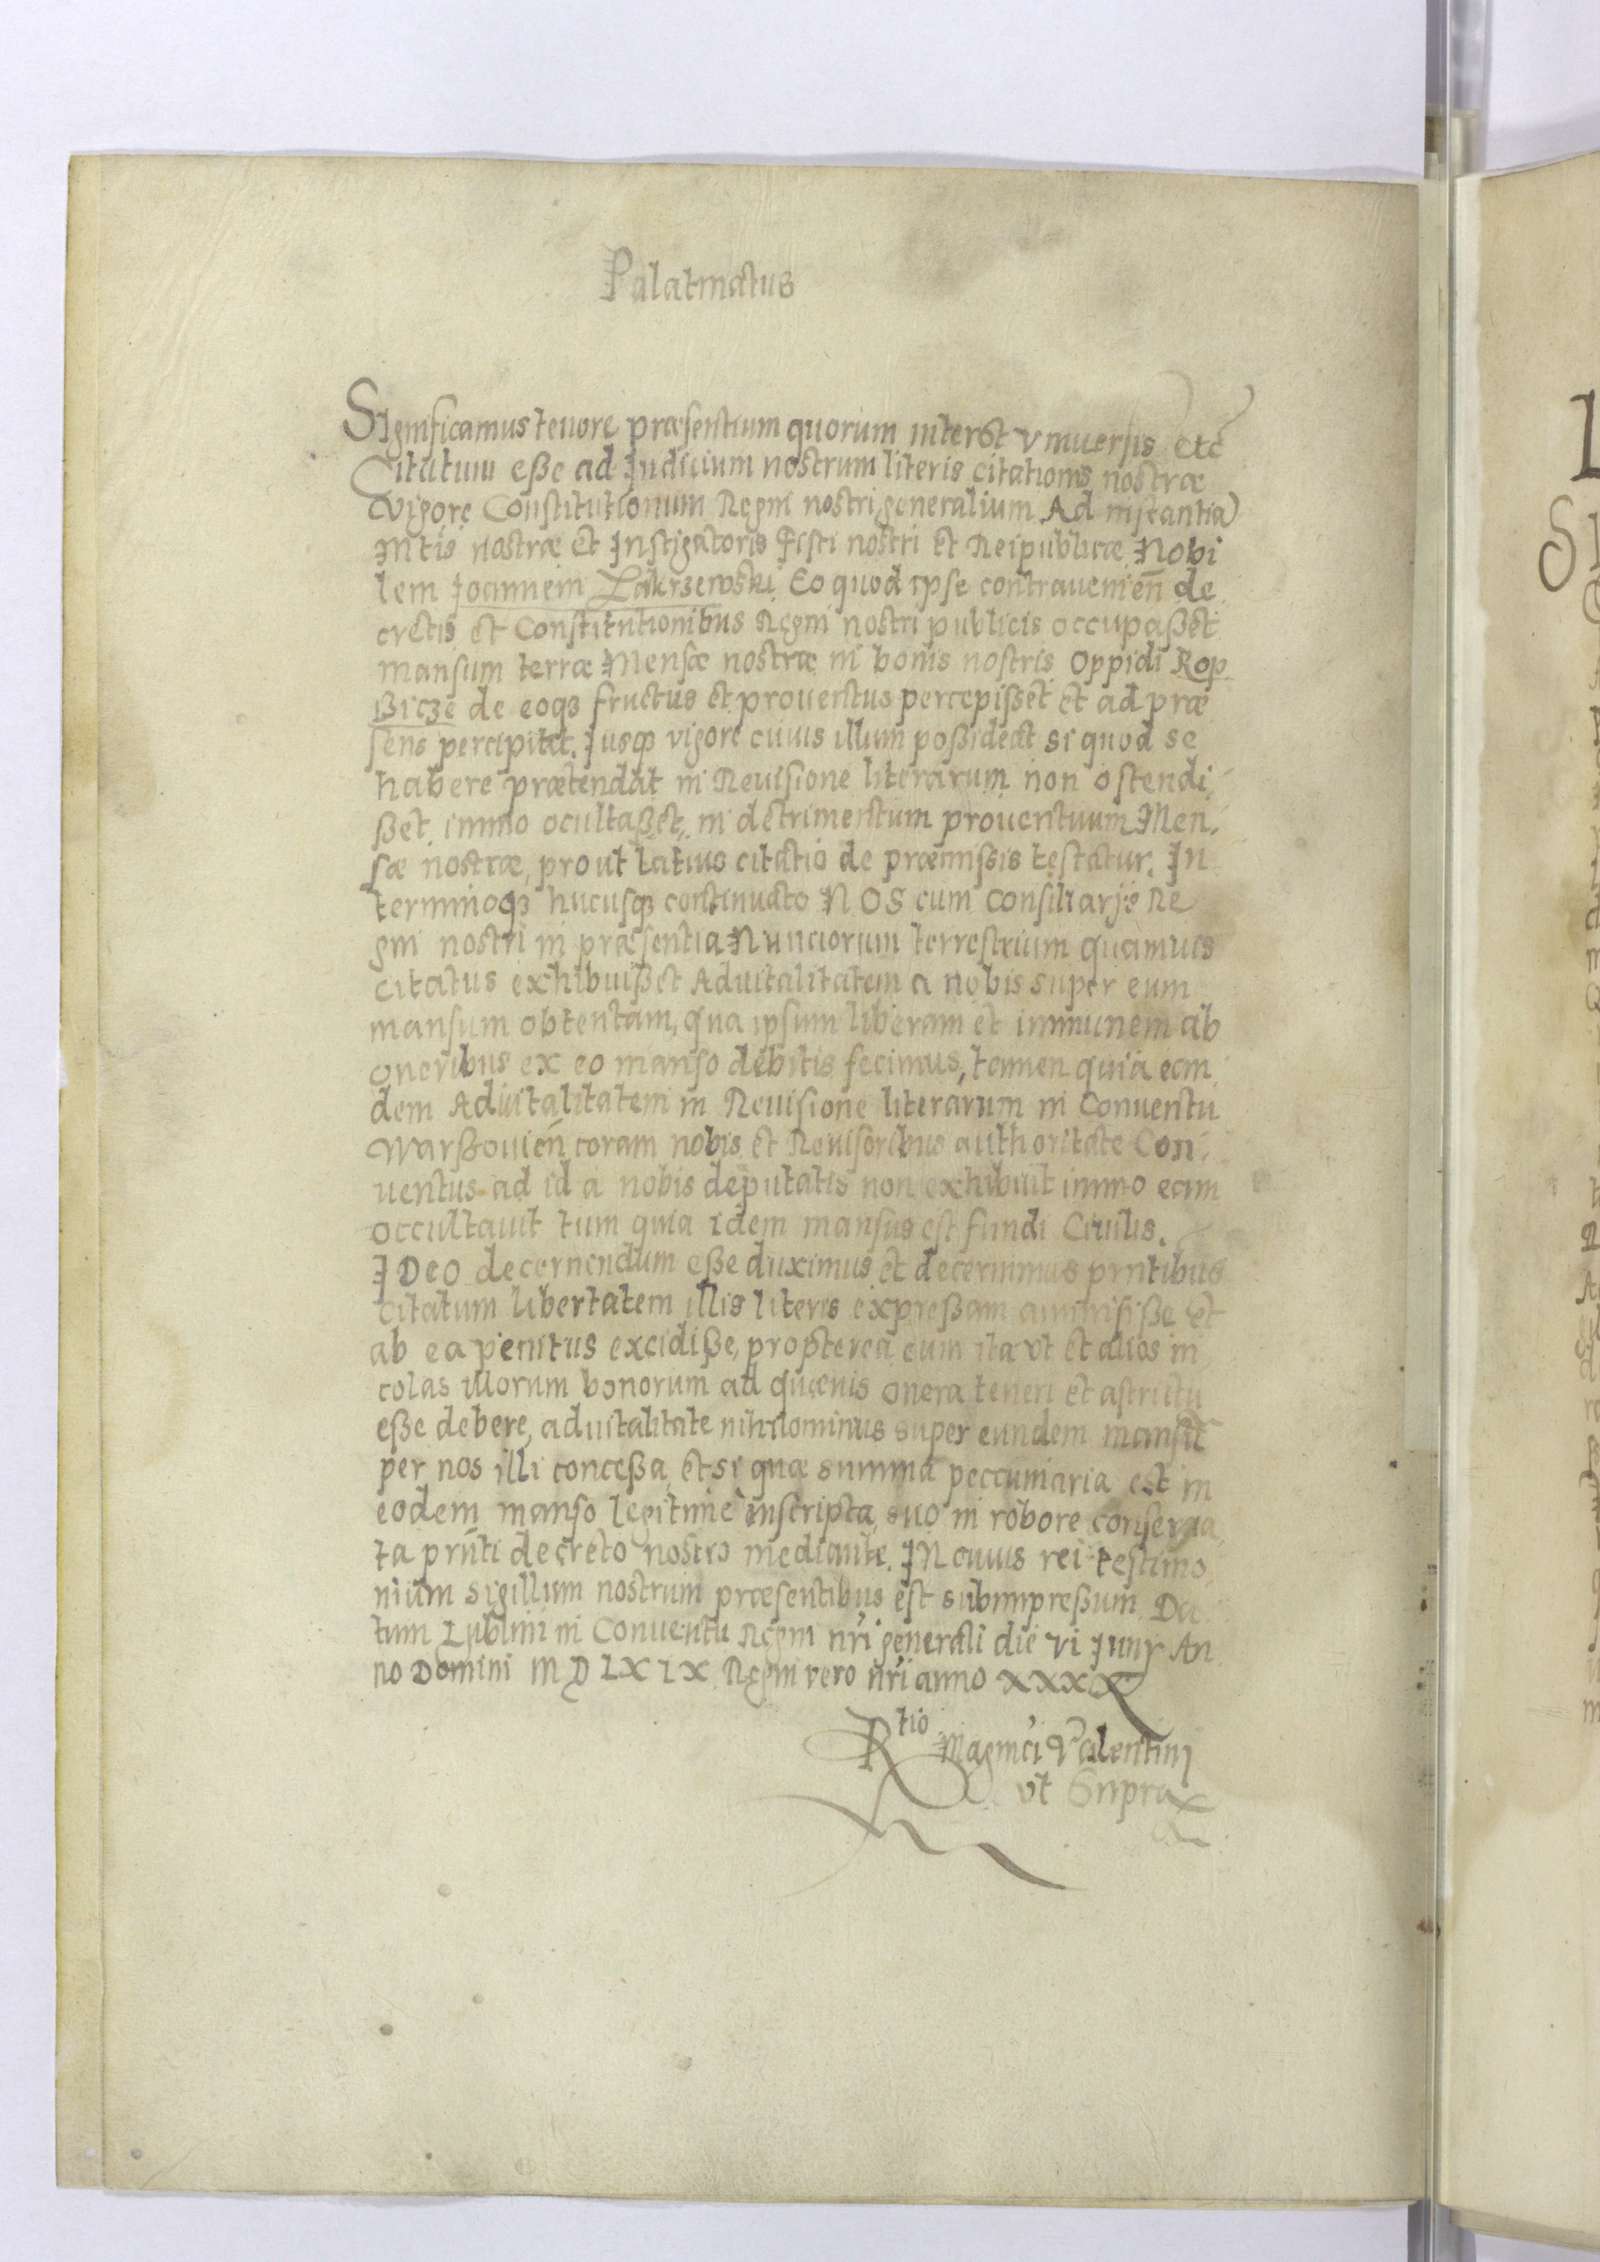 Palatinatus
Significamus tenore præsentium quorum interest vniuersis etc
Citatum eße ad Judicium nostrum literis citationis nostræ
vigore Constitutionum Regni nostri generalium Ad instantia
Mtis nostræ et Instigatoris Fisci nostri et Reipublicæ Nobi
lem Joannem Zakrzewski Eo quod ipse contraueniēn de
cretis et Constitutionibus Regni nostri publicis occupaßet
mansum terræ Mensæ nostræ in bonis nostris Oppidi Rop
ßicze de eoqꝫ fructus et prouentus percepisset et ad præ
sens percipitat. Jusqꝫ vigore cuius illum poßideat si quod se
habere prætendat in Reuisione literarum non ostendi
ßet immo ocultaßet, in detrimentum prouentuum Men,
sæ nostræ, prout latius citatio de præmissis testatur. In
terminoqꝫ hucusqꝫ continuato NOS cum Consiliarijs Re
gni nostri in præsentia Nunciorum terrestrium quamuis
citatus exhibuißet Aduitalitatem a nobis super eum
mansum obtentam, qua ipsum liberam et immunem ab
oneribus ex eo manso debitis fecimus, tamen quia eam
dem Aduitalitatem in Reuisione literarum in Conuentu
Warßouieñ coram nobis et Reuisoribus authoritate Con,
uentus ad id a nobis deputatis non exhibuit immo eam
occultauit tum quia idem mansus est fundi Ciuilis.
IDEO decernendum eße duximus et decernimus prntibus
citatum libertatem illis literis expreßam ammisiße et
ab ea penitus excidiße, propterea eum ita vt et alios in
colas illorum bonorum ad quæuis onera teneri et astrictu
eße debere, aduitalitate nihilominus super eundem mansū
per nos illi conceßa et si quæ summa peccuniaria est in
eodem manso legitime inscripta suo in robore conserua
ta prñti decreto nostro mediante. IN cuius rei testimo
nium sigillum nostrum præsentibus est subimpreßum Da
tum Lublini in Conuentu Regni nr̃i generali die vi Junij An
no Domini MDLXIX Regni vero nr̃i anno XXXX
Rtio Magnci Valentini
vt Supra